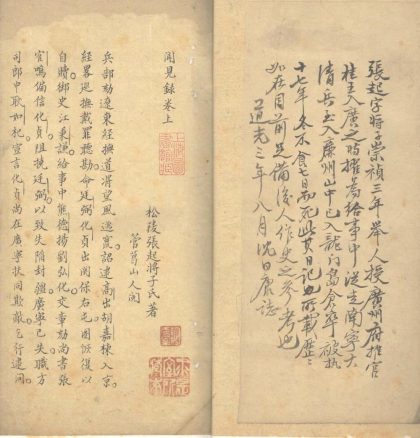 張起字將子崇禎三年舉人授廣州府推官
桂王入廣之時擢為給事中從走南寧大
清兵至入廉州山中已入龍門島倉卒被执
十七年冬不食七日而死此其日記也所載歷〻
如在目前足備後人作史之参考也
道光三年八月沈日庚誌
聞見錄卷上
松陵張起將子氏著
管葛山人閱
兵部劾遼東經撫道將望風逃竄詔逮高出胡嘉棟入京
經畧巡撫戴罪聽勘命廷弼化貞出関保右屯圖恢復以
自贖御史江秉謙給事中熊德揚劉弘化交章劾尚書張
官鳴偏信化貞阻撓廷弼以致失陷封疆廣寧已失職方
司郎中耿如杞宣言化貞尚在廣寧状同欺蔽乞行逮問